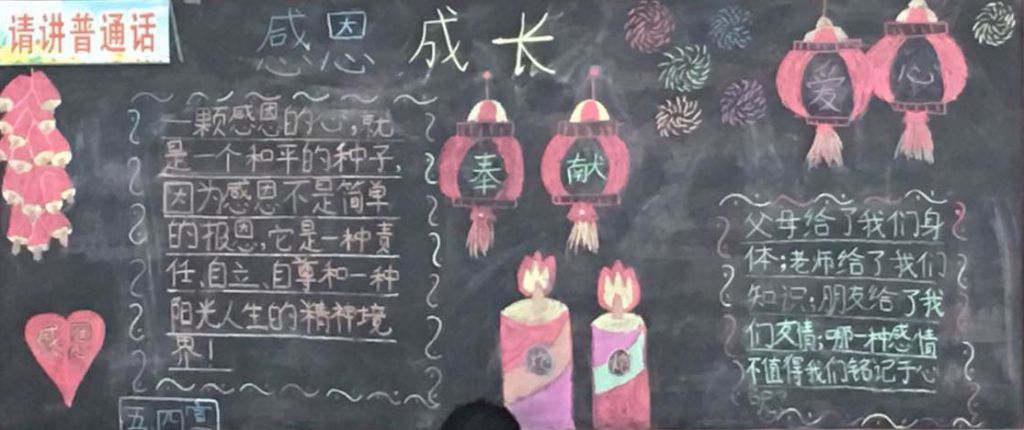 请讲普通话
感恩成长
一颗感恩的心,就
是一个和平的种子,
因为感恩不是简单
的报恩,它是一种责
任、自立、自尊和一种
阳光人生的精神境
界!
奉
献
爱
心
父母给了我们身
体;老师给了我们
知识;朋友给了我
们友情;哪一种感情
不值得我们铭记于心
感恩